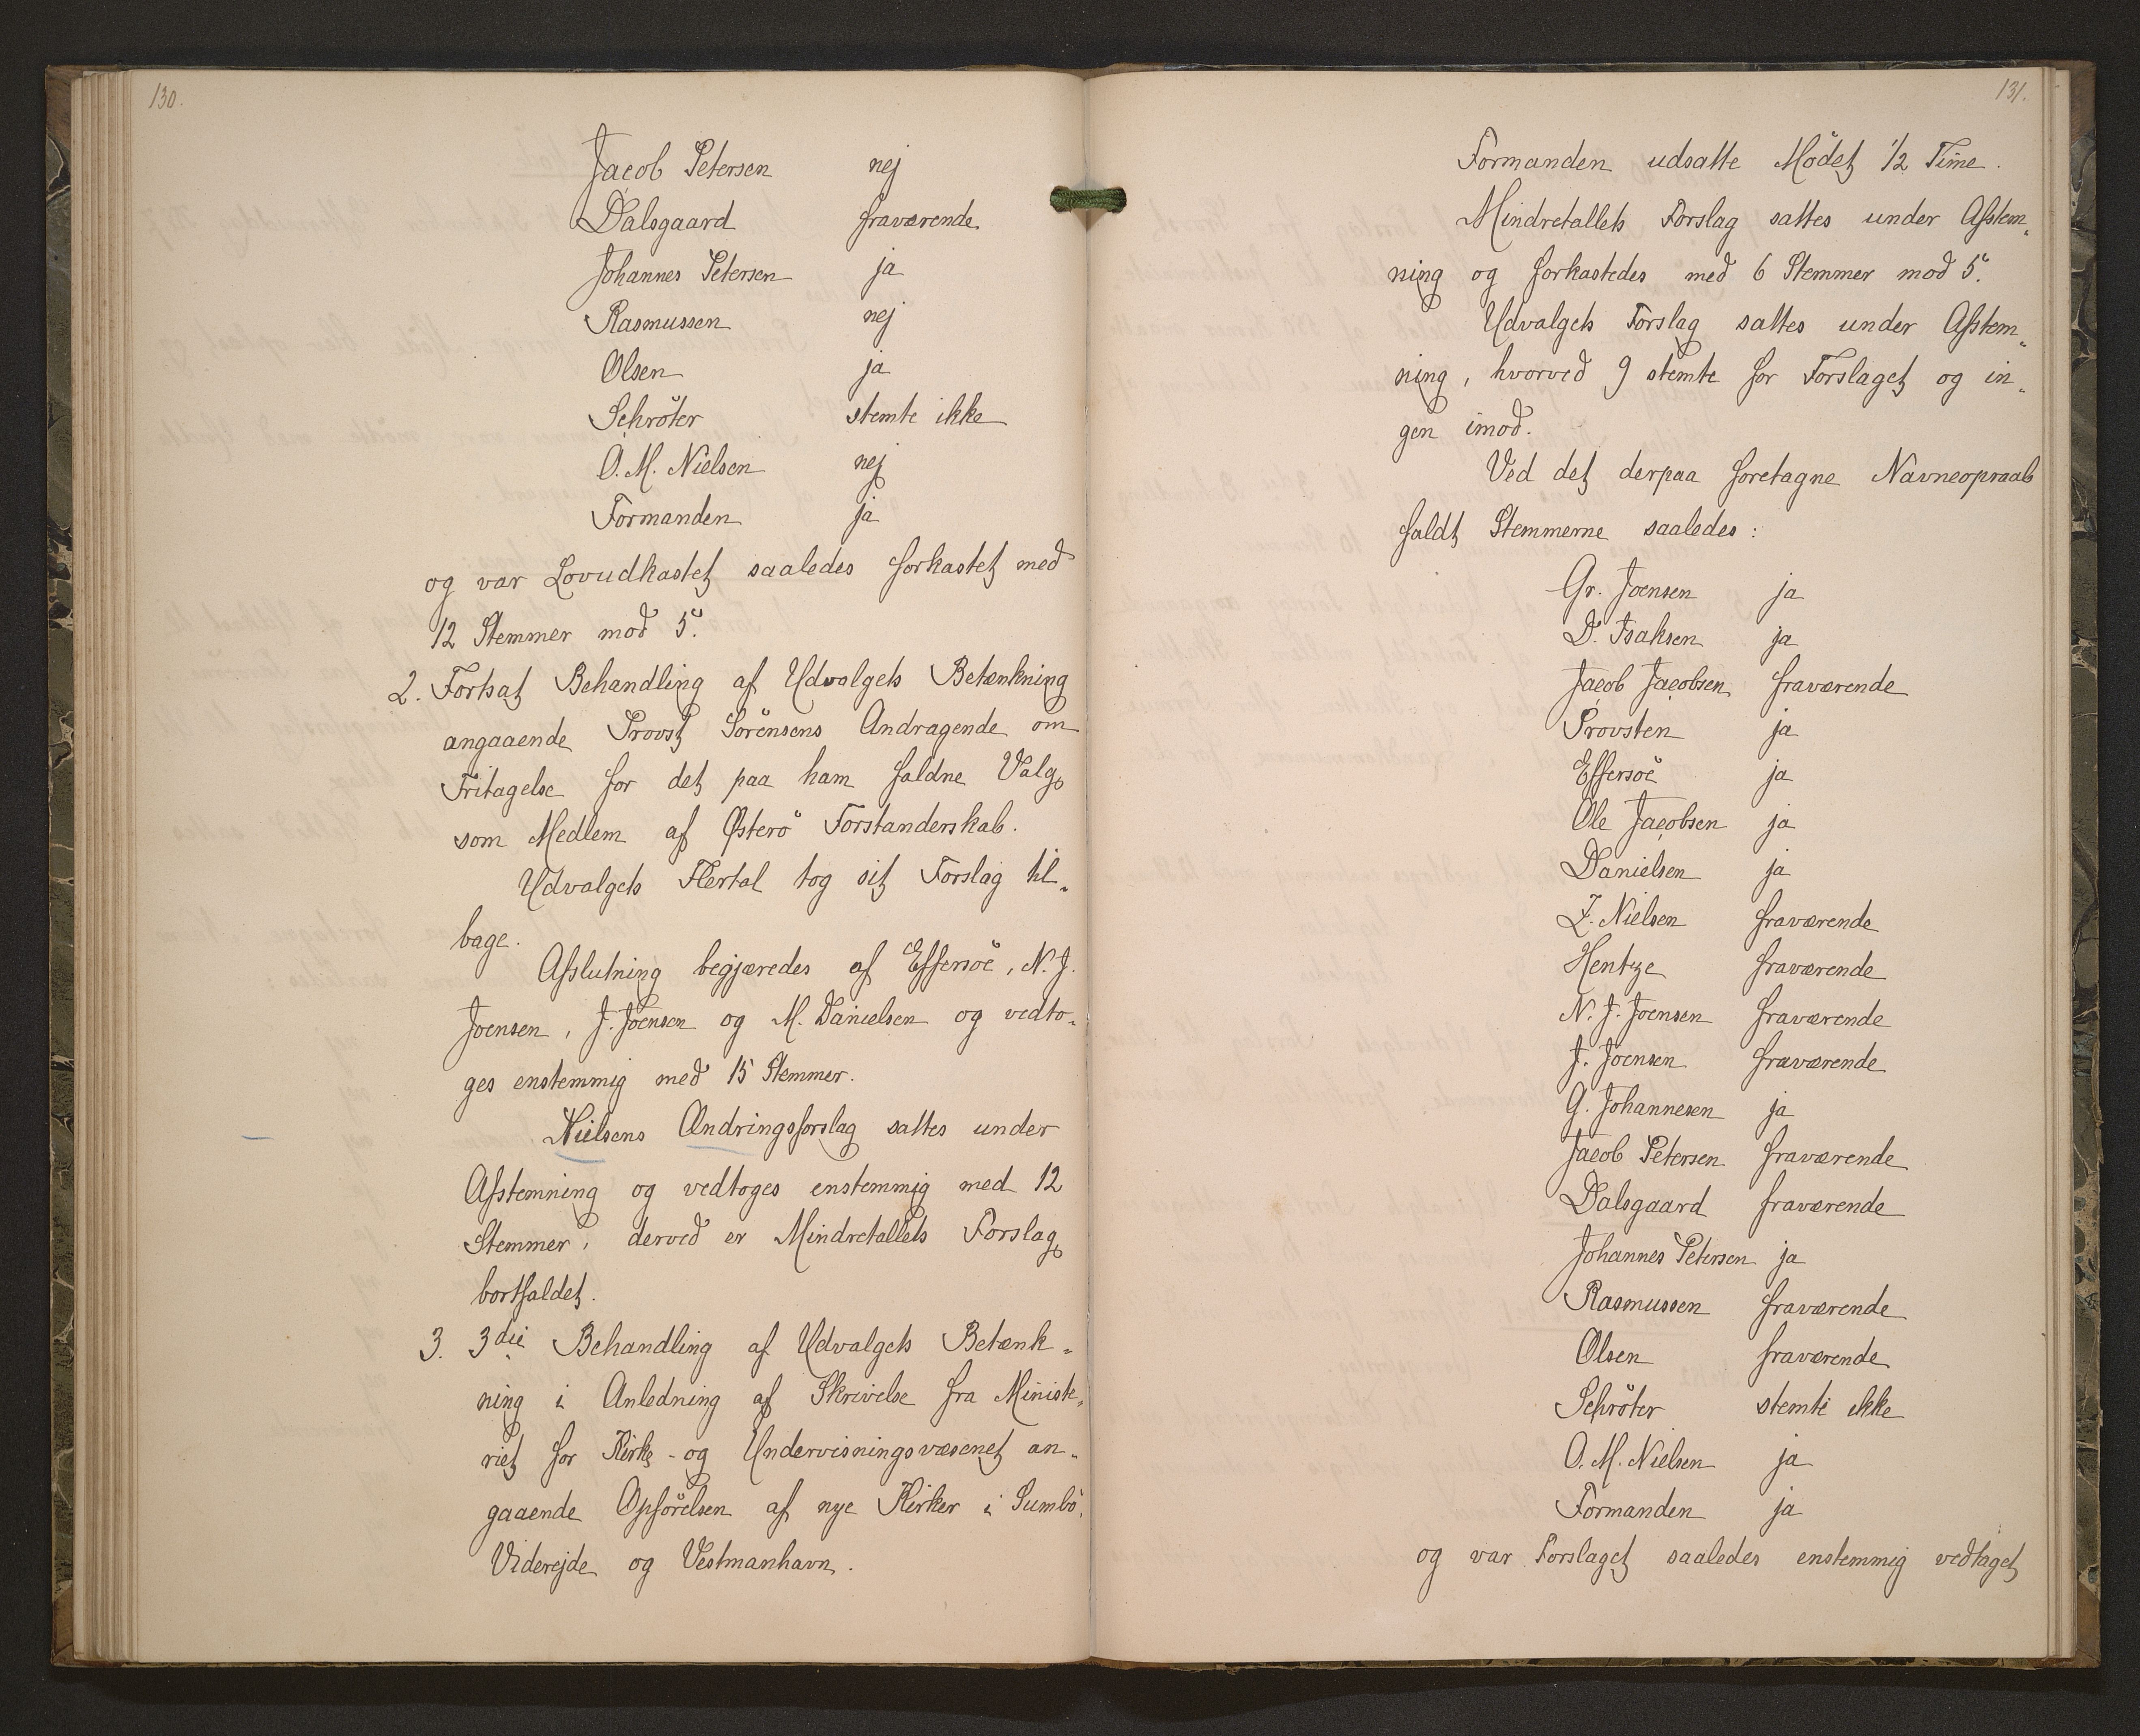 130.
Jacob Petersen nej
Dalsgaard fraværende
Johannes Petersen ja
Rasmussen nej
Olsen ja
Schröter stemte ikke
O. M. Nielsen nej
Formanden ja
og var Lovudkastet saaledes forkastet med
12 Stemmer mod 5.
2. Fortsat Behandling af Udvalgets Betænkning
angaaende Provst Sörensens Andragende om
Fritagelse for det paa ham faldne Valg
som Medlem af Østerö Forstanderskab.
Udvalgets Flertal tog sit Forslag til-
bage.
Afslutning begjæredes af Effersöe, N. J.
Joensen, J. Joensen og M. Danielsen og vedto-
ges enstemmig med 15 Stemmer.
Nielsens Ændringsforslag sattes under
Afstemning og vedtoges enstemmig med 12
Stemmer, derved er Mindretallets Forslag
bortfaldet.
3. 3die Behandling af Udvalgets Betænk-
ning i Anledning af Skrivelse fra Ministe-
riet for Kirke- og Undervisningsvæsenet an-
gaaende Opförelsen af nye Kirker i Sumbö,
Viderejde og Vestmanhavn.
131.
Formanden udsatte Mödet 1/2 Time.
Mindretallets Forslag sattes under Afstem-
ning og forkastedes med 6 Stemmer mod 5.
Udvalgets Forslag sattes under Afstem-
ning, hvorved 9 stemte for Forslaget og in-
gen imod.
Ved det derpaa foretagne Navneopraab
faldt Stemmerne saaledes:
Gr. Joensen ja
D. Isaksen ja
Jacob Jacobsen fraværende
Provsten ja
Effersöe ja
Ole Jacobsen ja
Danielsen ja
Z. Nielsen fraværende
Hentze fraværende
N. J. Joensen fraværende
J. Joensen fraværende
G. Johannesen ja
Jacob Petersen fraværende
Dalsgaard fraværende
Johannes Petersen ja
Rasmussen fraværende
Olsen fraværende
Schröter stemte ikke
O. M. Nielsen ja
Formanden ja
og var Forslaget saaledes enstemmig vedtaget